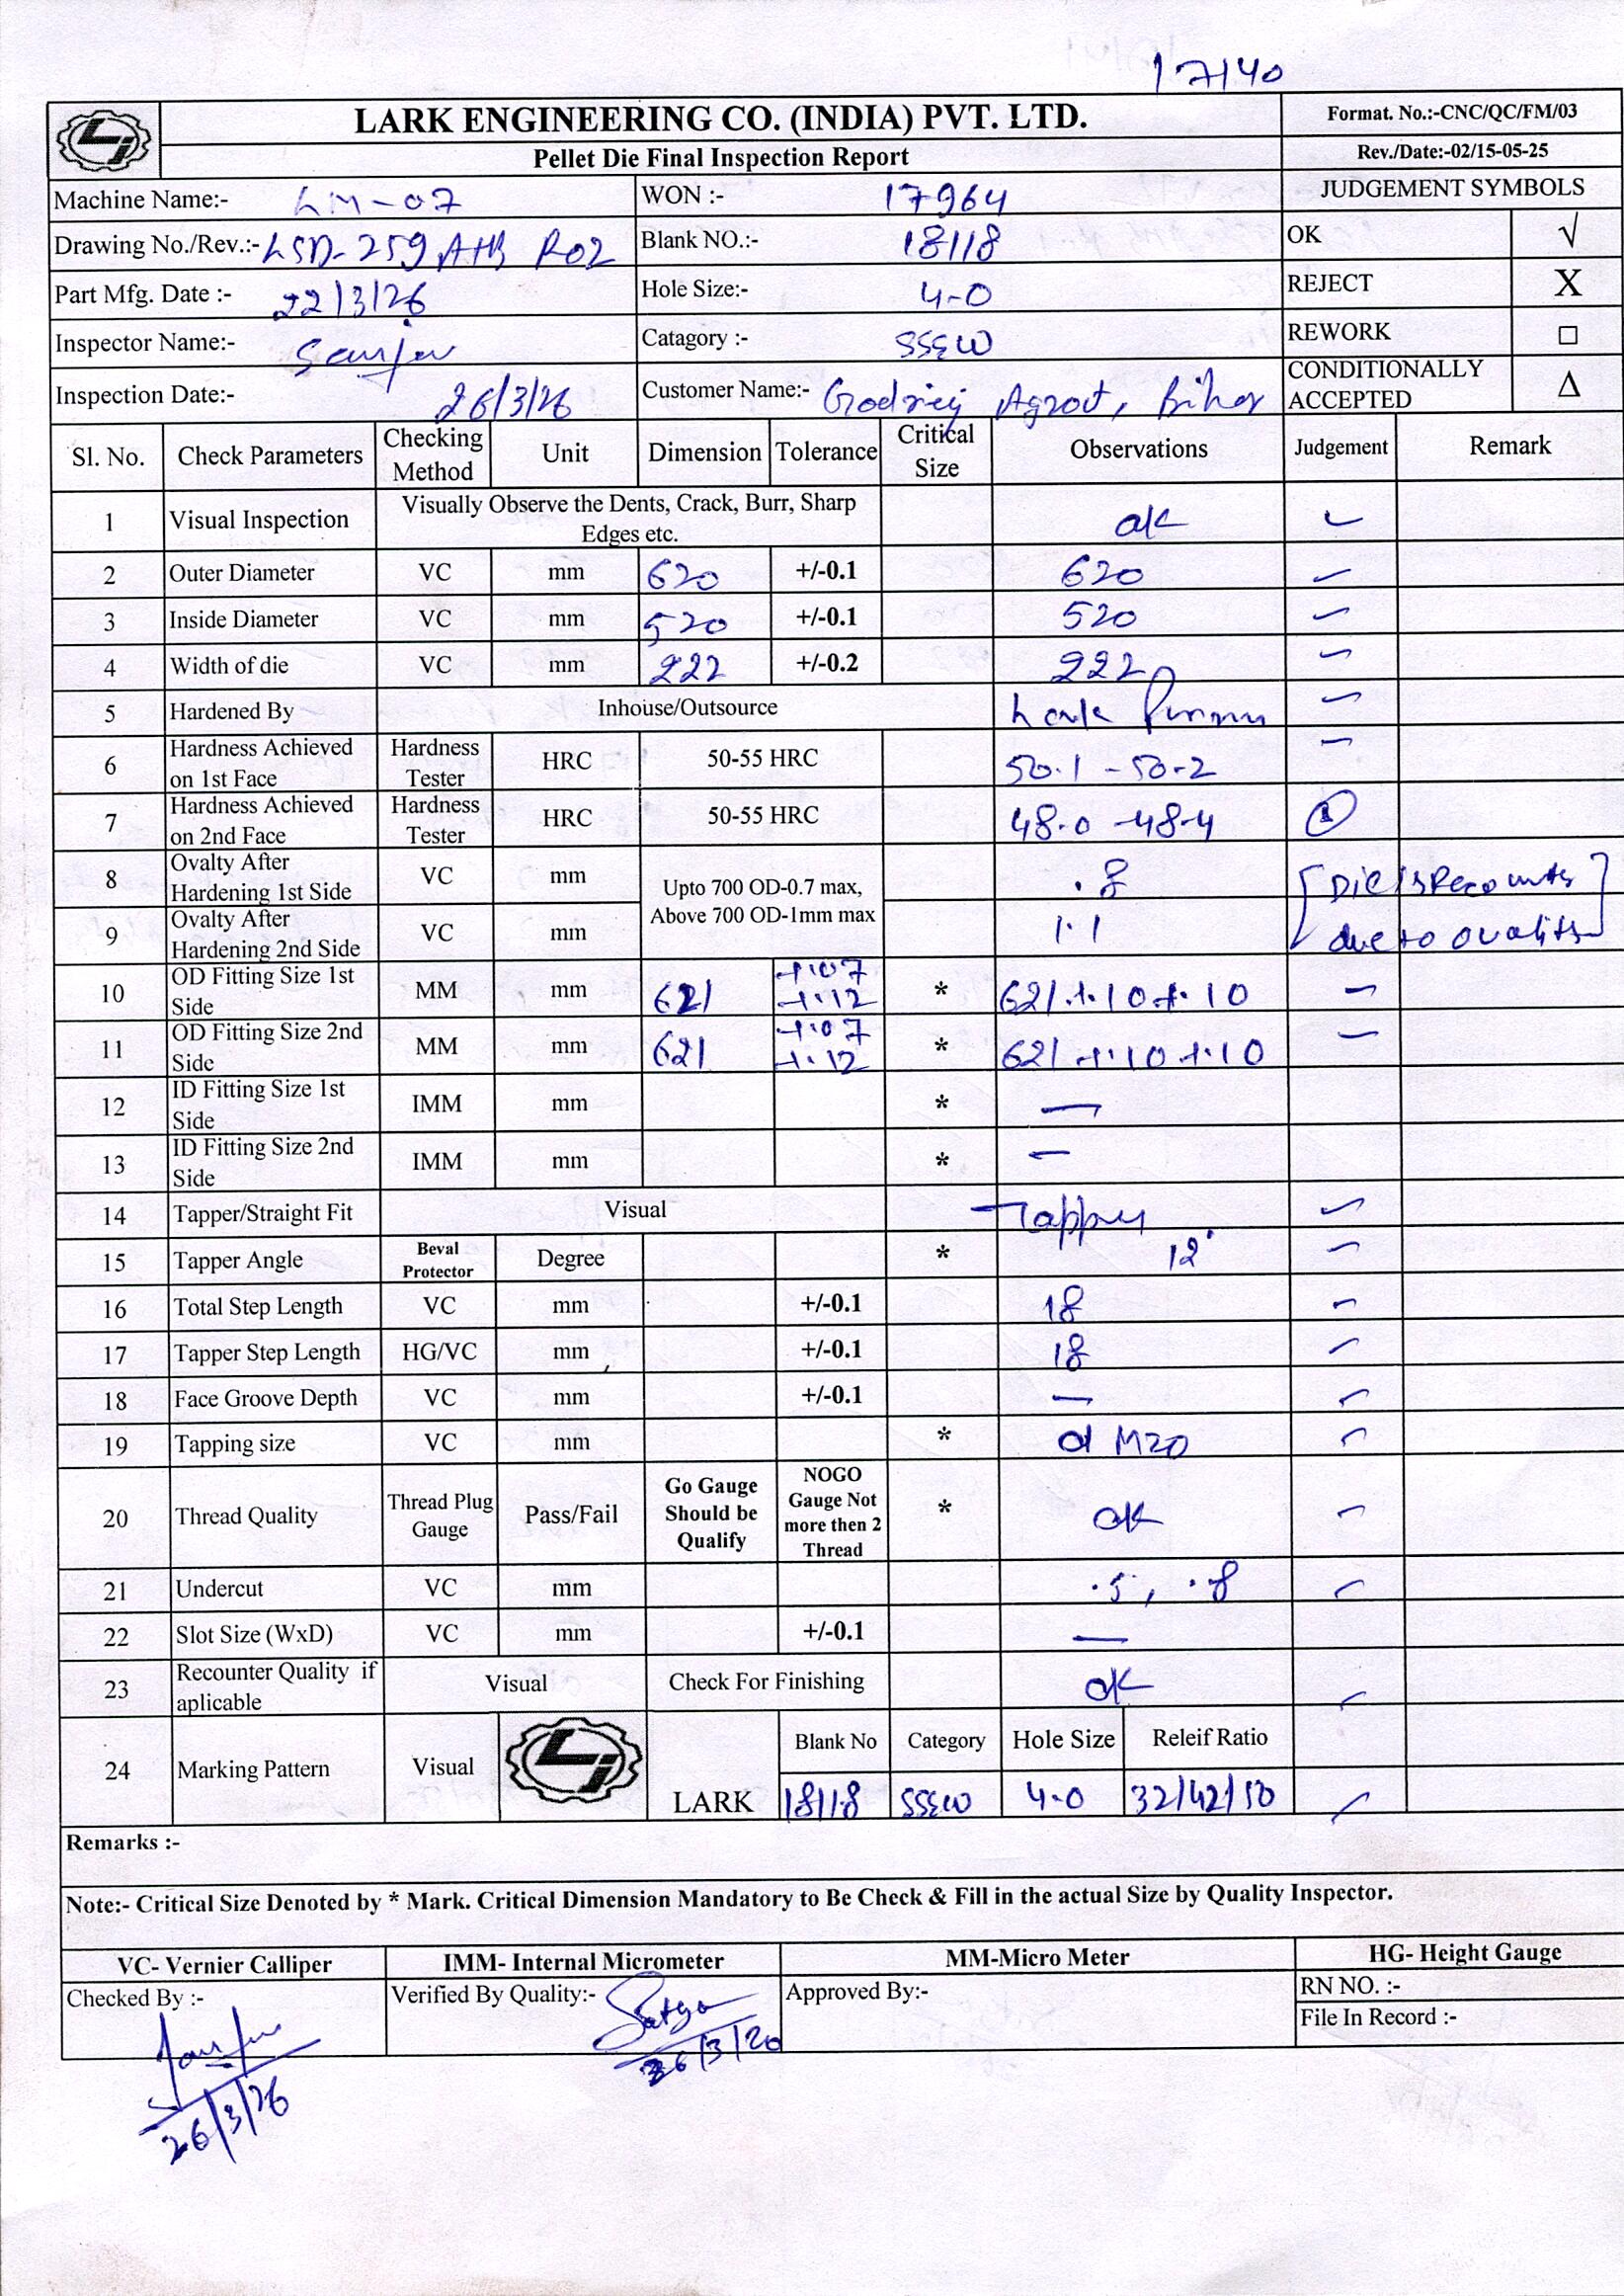 17140
LARK ENGINEERING CO. (INDIA) PVT. LTD.
Pellet Die Final Inspection Report
Format. No.:-CNC/QC/FM/03
Rev./Date:-02/15-05-25
Machine Name:- LM-07
WON :- 17964
JUDGEMENT SYMBOLS
Drawing No./Rev.:- LSD-259 AHB R02
Blank NO.:- 18118
OK √
Part Mfg. Date :- 22/3/26
Hole Size:- 4-0
REJECT X
Inspector Name:-
Catagory :- SSEW
REWORK □
Inspection Date:- 26/3/26
Customer Name:- Godrej Agrovt, Bihar
CONDITIONALLY ACCEPTED Δ
Sl. No. Check Parameters Checking Method Unit Dimension Tolerance Critical Size Observations Judgement Remark
1 Visual Inspection Visually Observe the Dents, Crack, Burr, Sharp Edges etc. ok
2 Outer Diameter VC mm 620 +/-0.1 620
3 Inside Diameter VC mm 520 +/-0.1 520
4 Width of die VC mm 222 +/-0.2 222
5 Hardened By Inhouse/Outsource Lark
6 Hardness Achieved on 1st Face Hardness Tester HRC 50-55 HRC 50.1 - 50-2
7 Hardness Achieved on 2nd Face Hardness Tester HRC 50-55 HRC 48.0 -48-4
8 Ovalty After Hardening 1st Side VC mm Upto 700 OD-0.7 max, Above 700 OD-1mm max .8
9 Ovalty After Hardening 2nd Side VC mm 1.1
[Die is Recounter due to ovality]
10 OD Fitting Size 1st Side MM mm 621 +.07 +.12 * 621 +.10 +.10
11 OD Fitting Size 2nd Side MM mm 621 +.07 +.12 * 621 +.10 +.10
12 ID Fitting Size 1st Side IMM mm * —
13 ID Fitting Size 2nd Side IMM mm * —
14 Tapper/Straight Fit Visual Tapper
15 Tapper Angle Beval Protector Degree * 12°
16 Total Step Length VC mm +/-0.1 18
17 Tapper Step Length HG/VC mm +/-0.1 18
18 Face Groove Depth VC mm +/-0.1 —
19 Tapping size VC mm * M20
20 Thread Quality Thread Plug Gauge Pass/Fail Go Gauge Should be Qualify NOGO Gauge Not more then 2 Thread * ok
21 Undercut VC mm .5, .8
22 Slot Size (WxD) VC mm +/-0.1 —
23 Recounter Quality if aplicable Visual Check For Finishing ok
24 Marking Pattern Visual LARK Blank No Category Hole Size Releif Ratio
18118 SSEW 4.0 32/42/50
Remarks :-
Note:- Critical Size Denoted by * Mark. Critical Dimension Mandatory to Be Check & Fill in the actual Size by Quality Inspector.
VC- Vernier Calliper IMM- Internal Micrometer MM-Micro Meter HG- Height Gauge
Checked By :-
Verified By Quality:- Satya
Approved By:-
RN NO. :-
File In Record :-
26/3/20
26/3/26